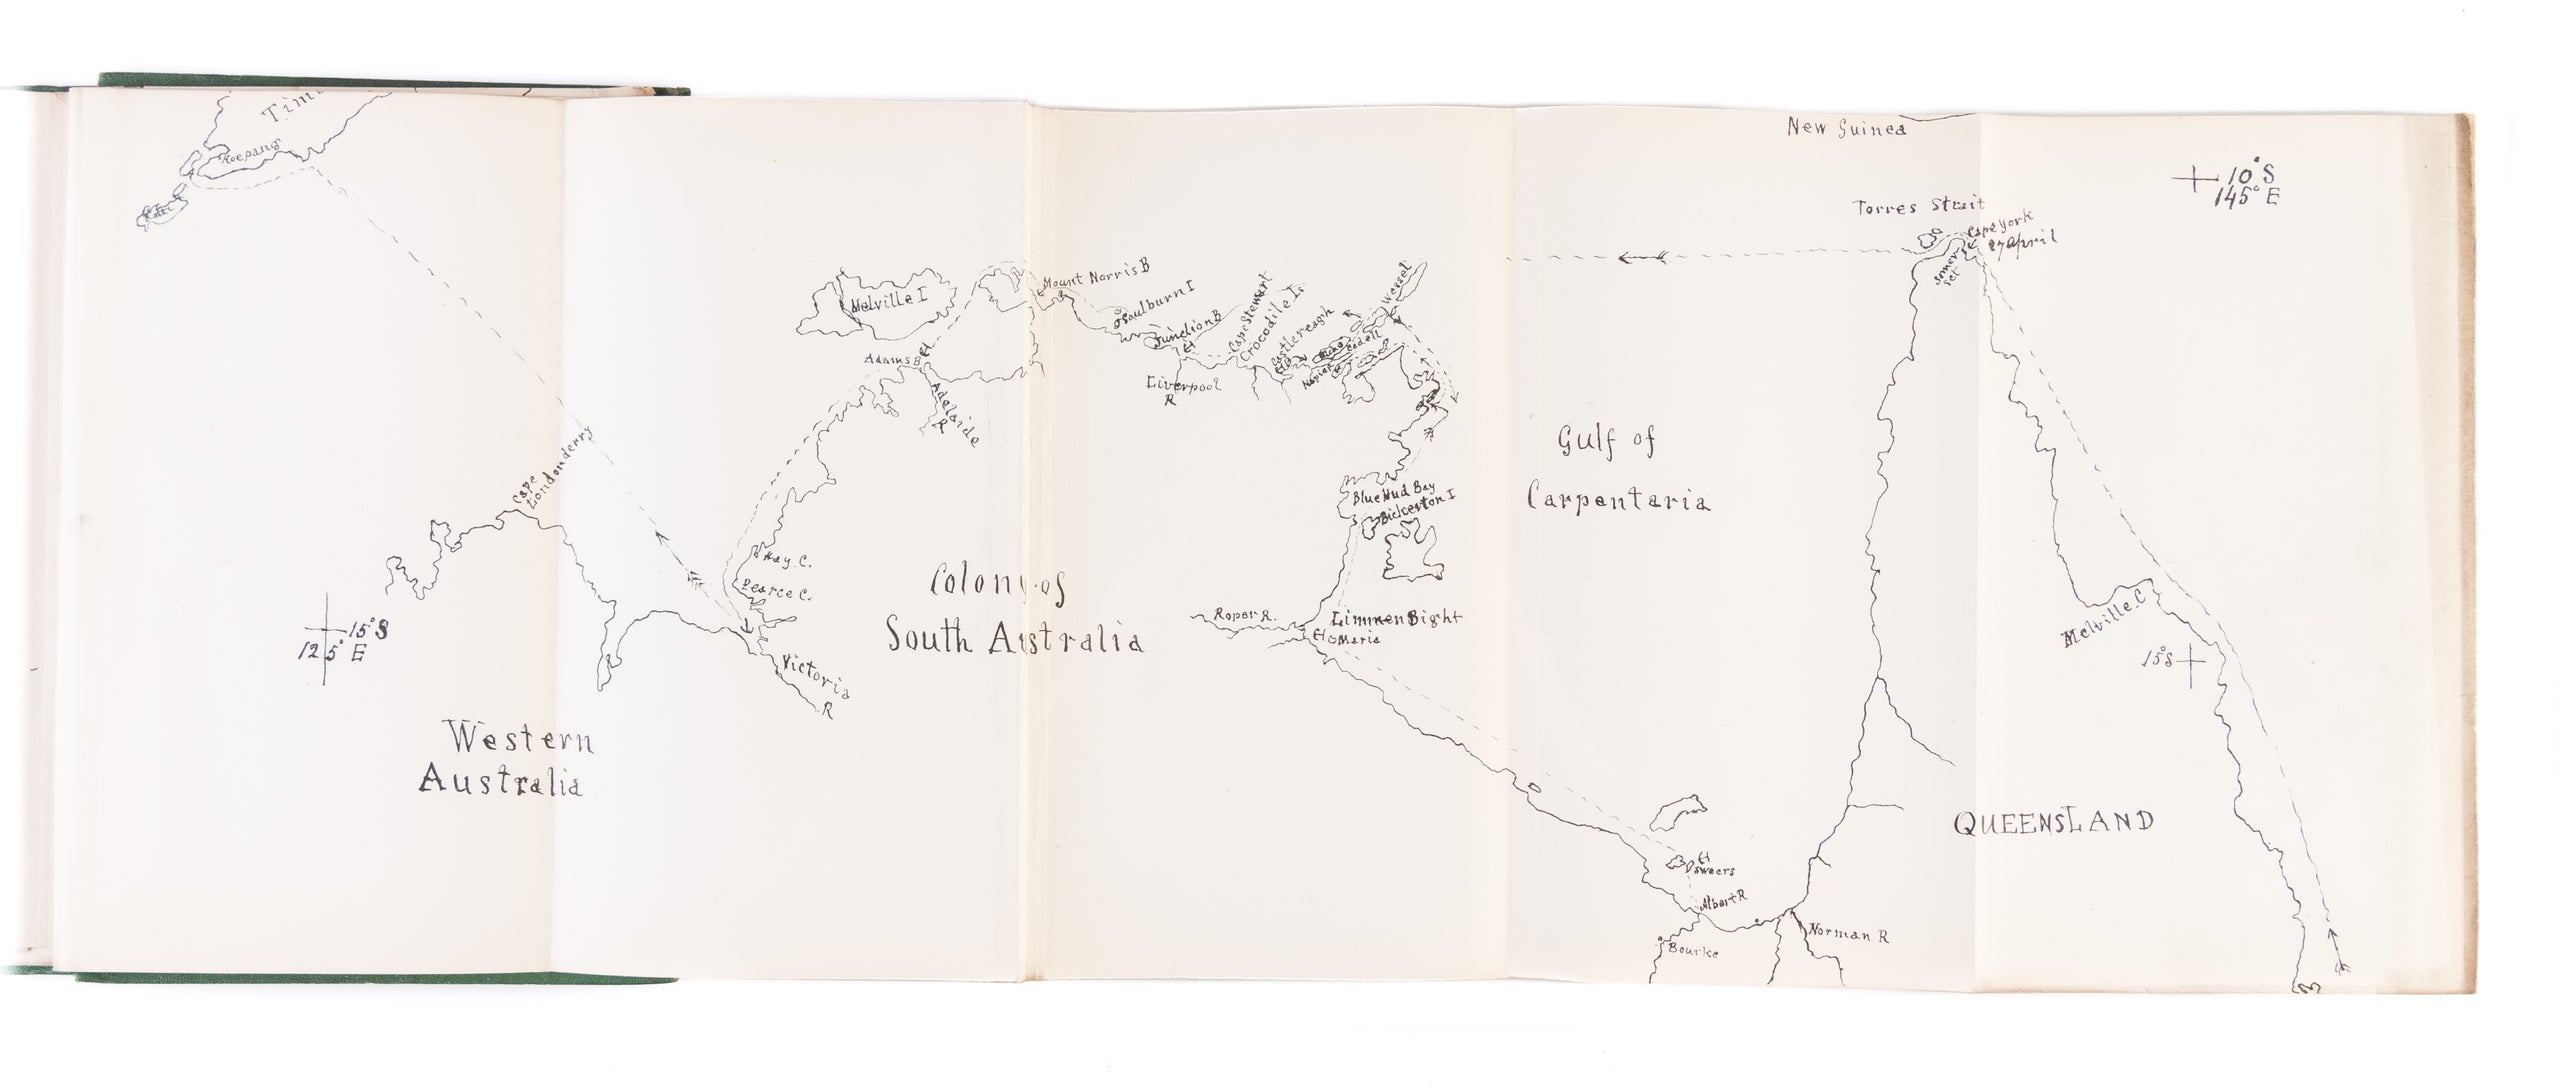 Koepang
New Guinea
10°S
145°E
Torres Strait
Cape York
27 April
Somer
set
Mount Norris B
Melville I
Goulburn I
Junction B
Cape Stewart
Crocodile Is
Castlereagh
Cadell
Wessel
Adams B
Liverpool
R
Adelaide
R
Gulf of
Carpentaria
Cape
Londonderry
Blue Mud Bay
Bickerton I
Hay C.
Pearce C.
Colony of
South Australia
Roper R.
Limmen Bight
Maria
15°S
125°E
Melville C
15°S
Victoria
R
Western
Australia
QUEENSLAND
Sweers
Albert R
Bourke
Norman R